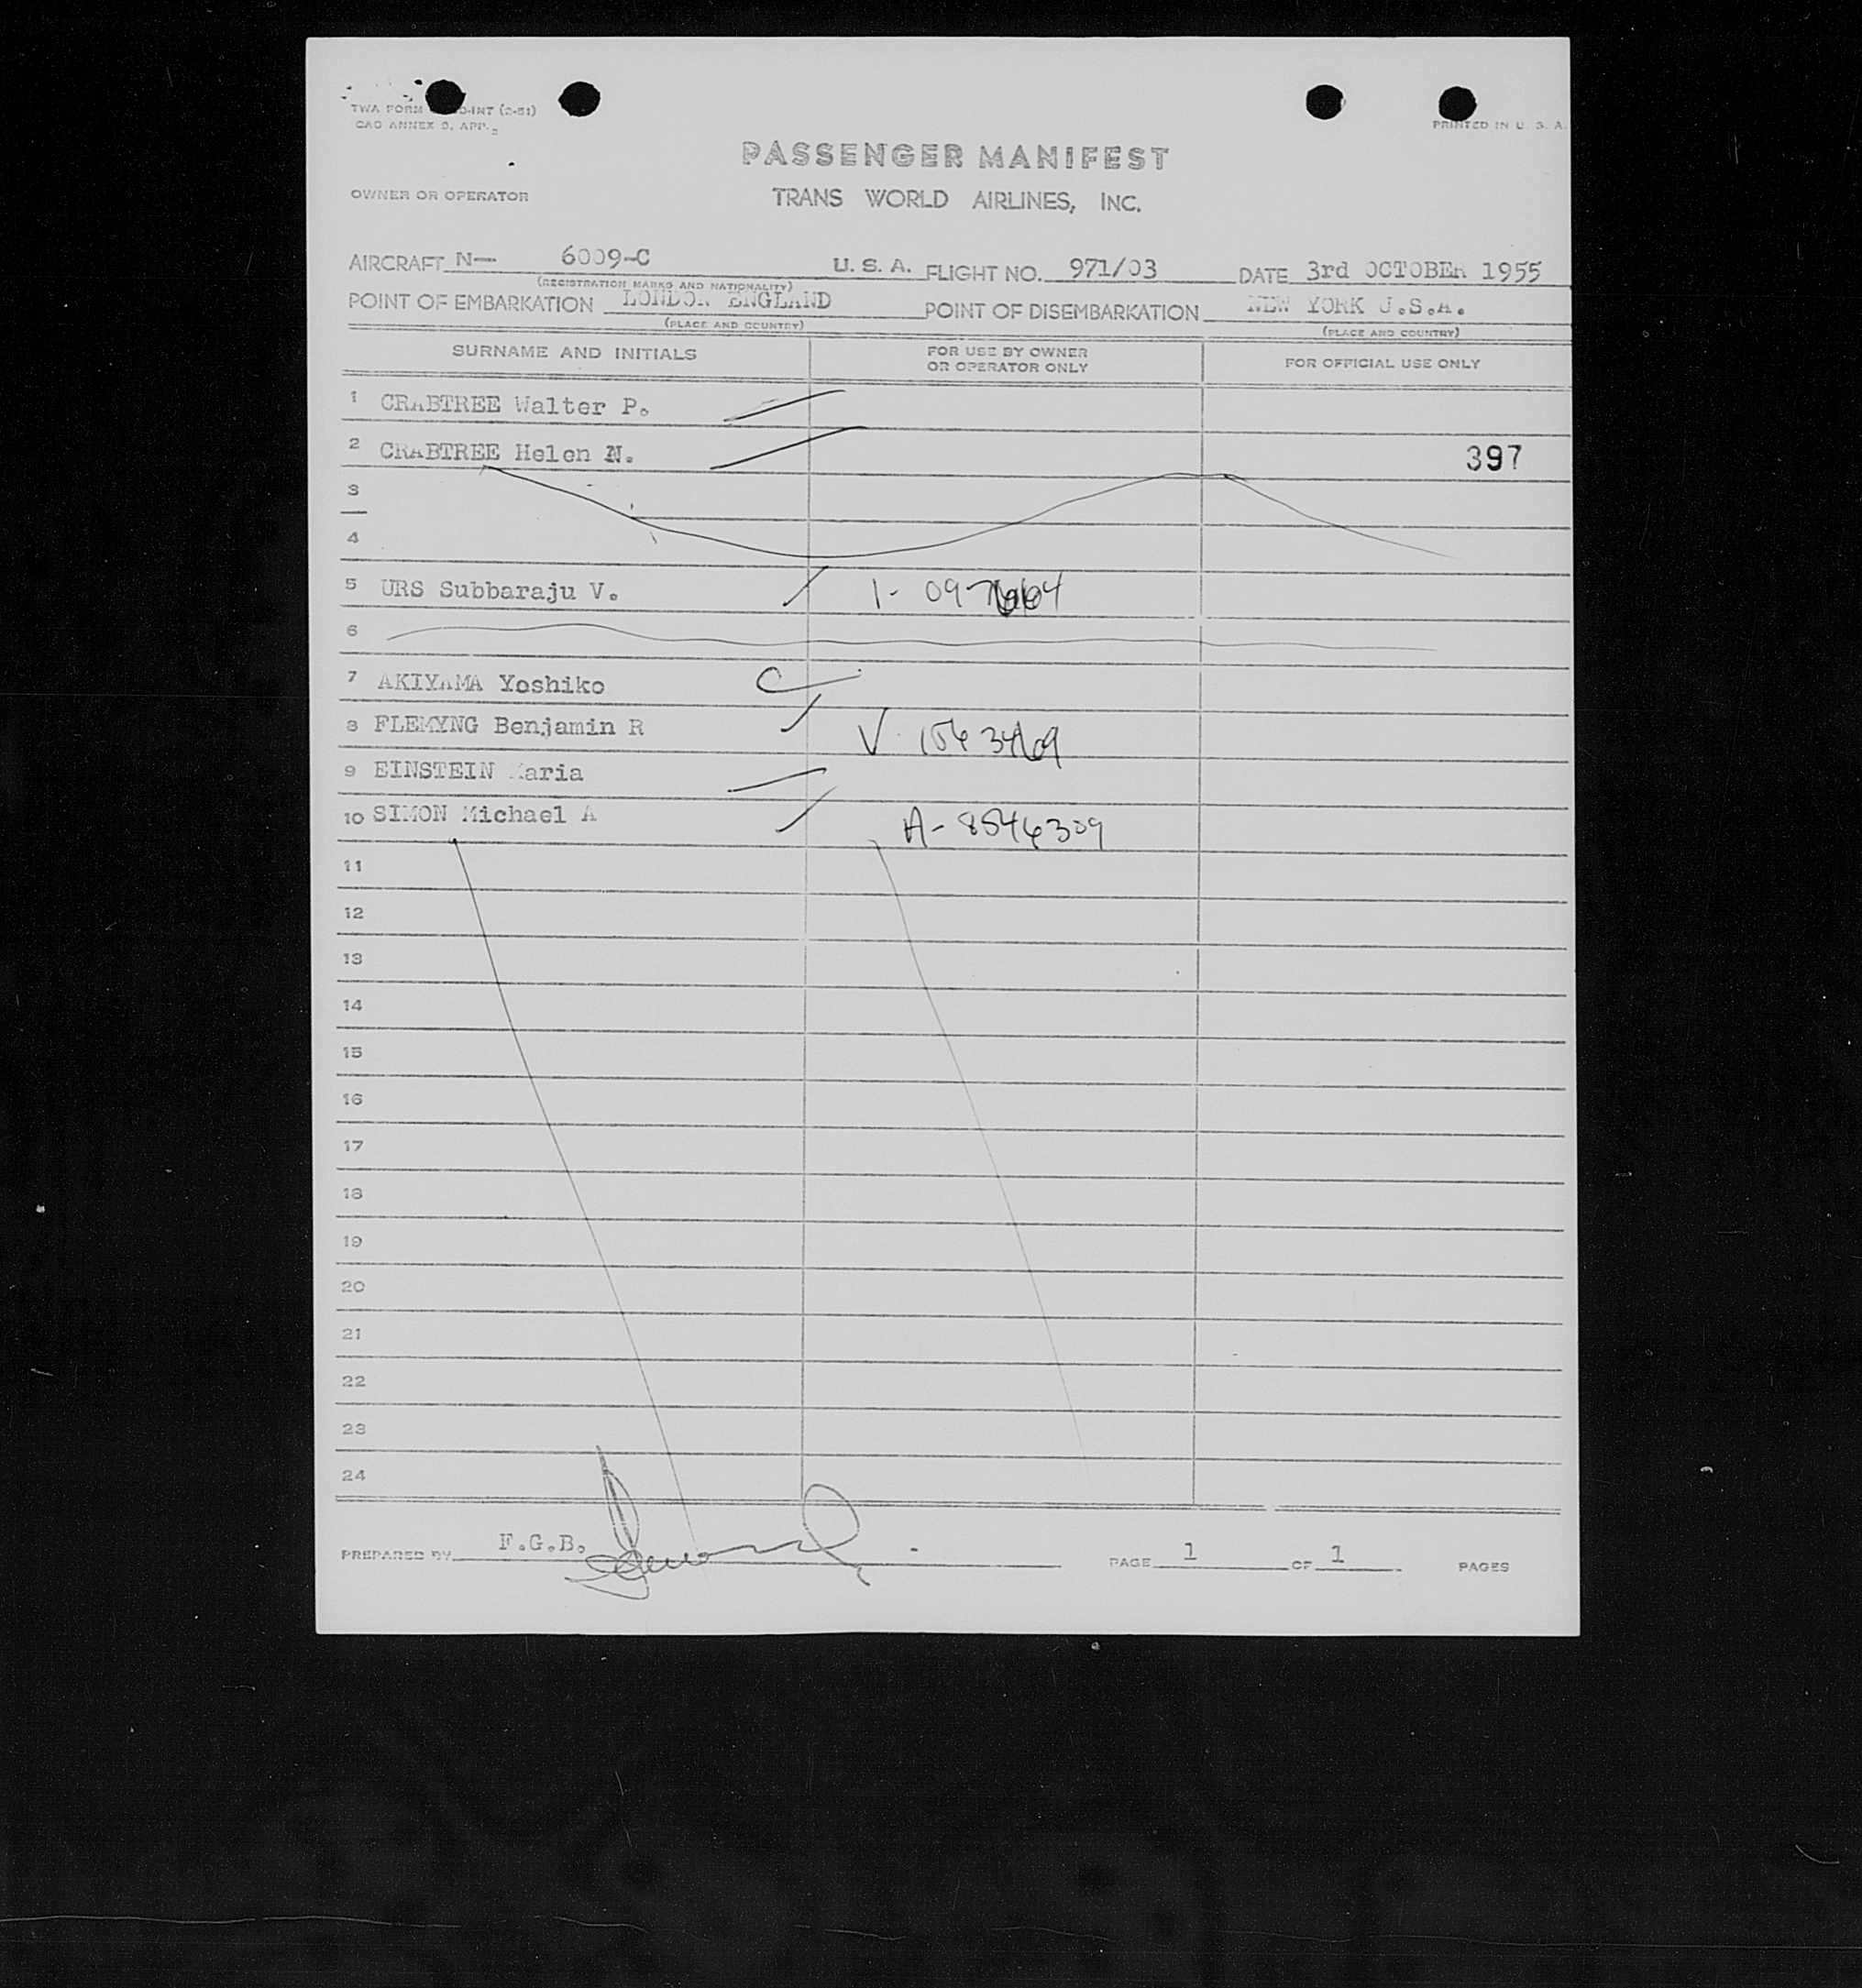 TWA FORM -INT (2-51)
PRINTED IN U. S. A.
PASSENGER MANIFEST
OWNER OR OPERATOR
TRANS WORLD AIRLINES, INC.
AIRCRAFT N— 6009-C U. S. A. FLIGHT NO. 971/03 DATE 3rd OCTOBER 1955
(REGISTRATION MARKS AND NATIONALITY)
POINT OF EMBARKATION LONDON ENGLAND POINT OF DISEMBARKATION NEW YORK U.S.A.
(PLACE AND COUNTRY) (PLACE AND COUNTRY)
SURNAME AND INITIALS FOR USE BY OWNER OR OPERATOR ONLY FOR OFFICIAL USE ONLY
1 CRABTREE Walter P.
2 CRABTREE Helen N. 397
3
4
5 URS Subbaraju V.
6
7 AKIYAMA Yoshiko C
8 FLEMYNG Benjamin R
9 EINSTEIN Maria
10 SIMON Michael A A-8546309
11
12
13
14
15
16
17
18
19
20
21
22
23
24
PREPARED BY F.G.B. PAGE 1 OF 1 PAGES